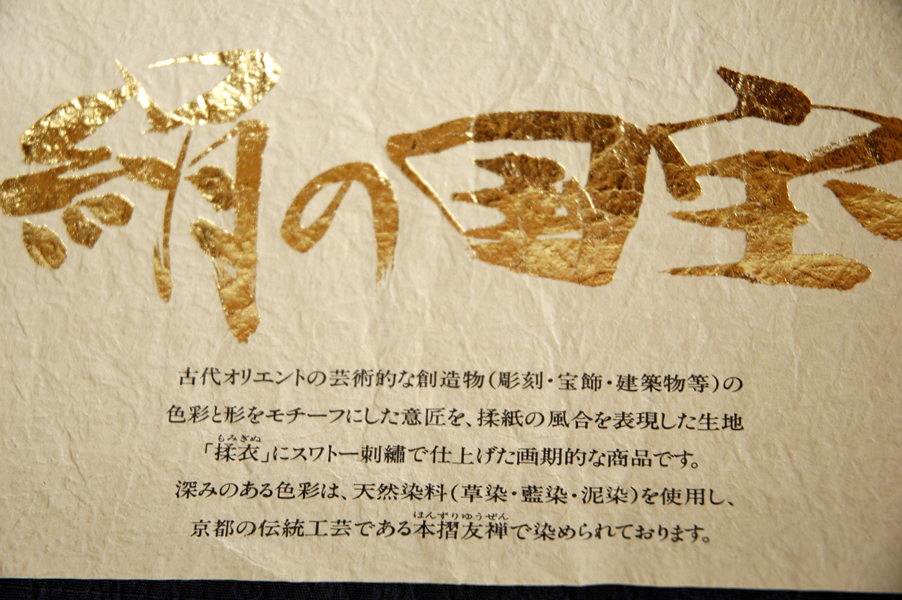 絹の国宝
古代オリエントの芸術的な創造物(彫刻・宝飾・建築物等)の
色彩と形をモチーフにした意匠を、揉紙の風合を表現した生地
もみぎぬ
「揉衣」にスワトー刺繡で仕上げた画期的な商品です。
深みのある色彩は、天然染料(草染・藍染・泥染)を使用し、
ほんずりゆうぜん
京都の伝統工芸である本摺友禅で染められております。